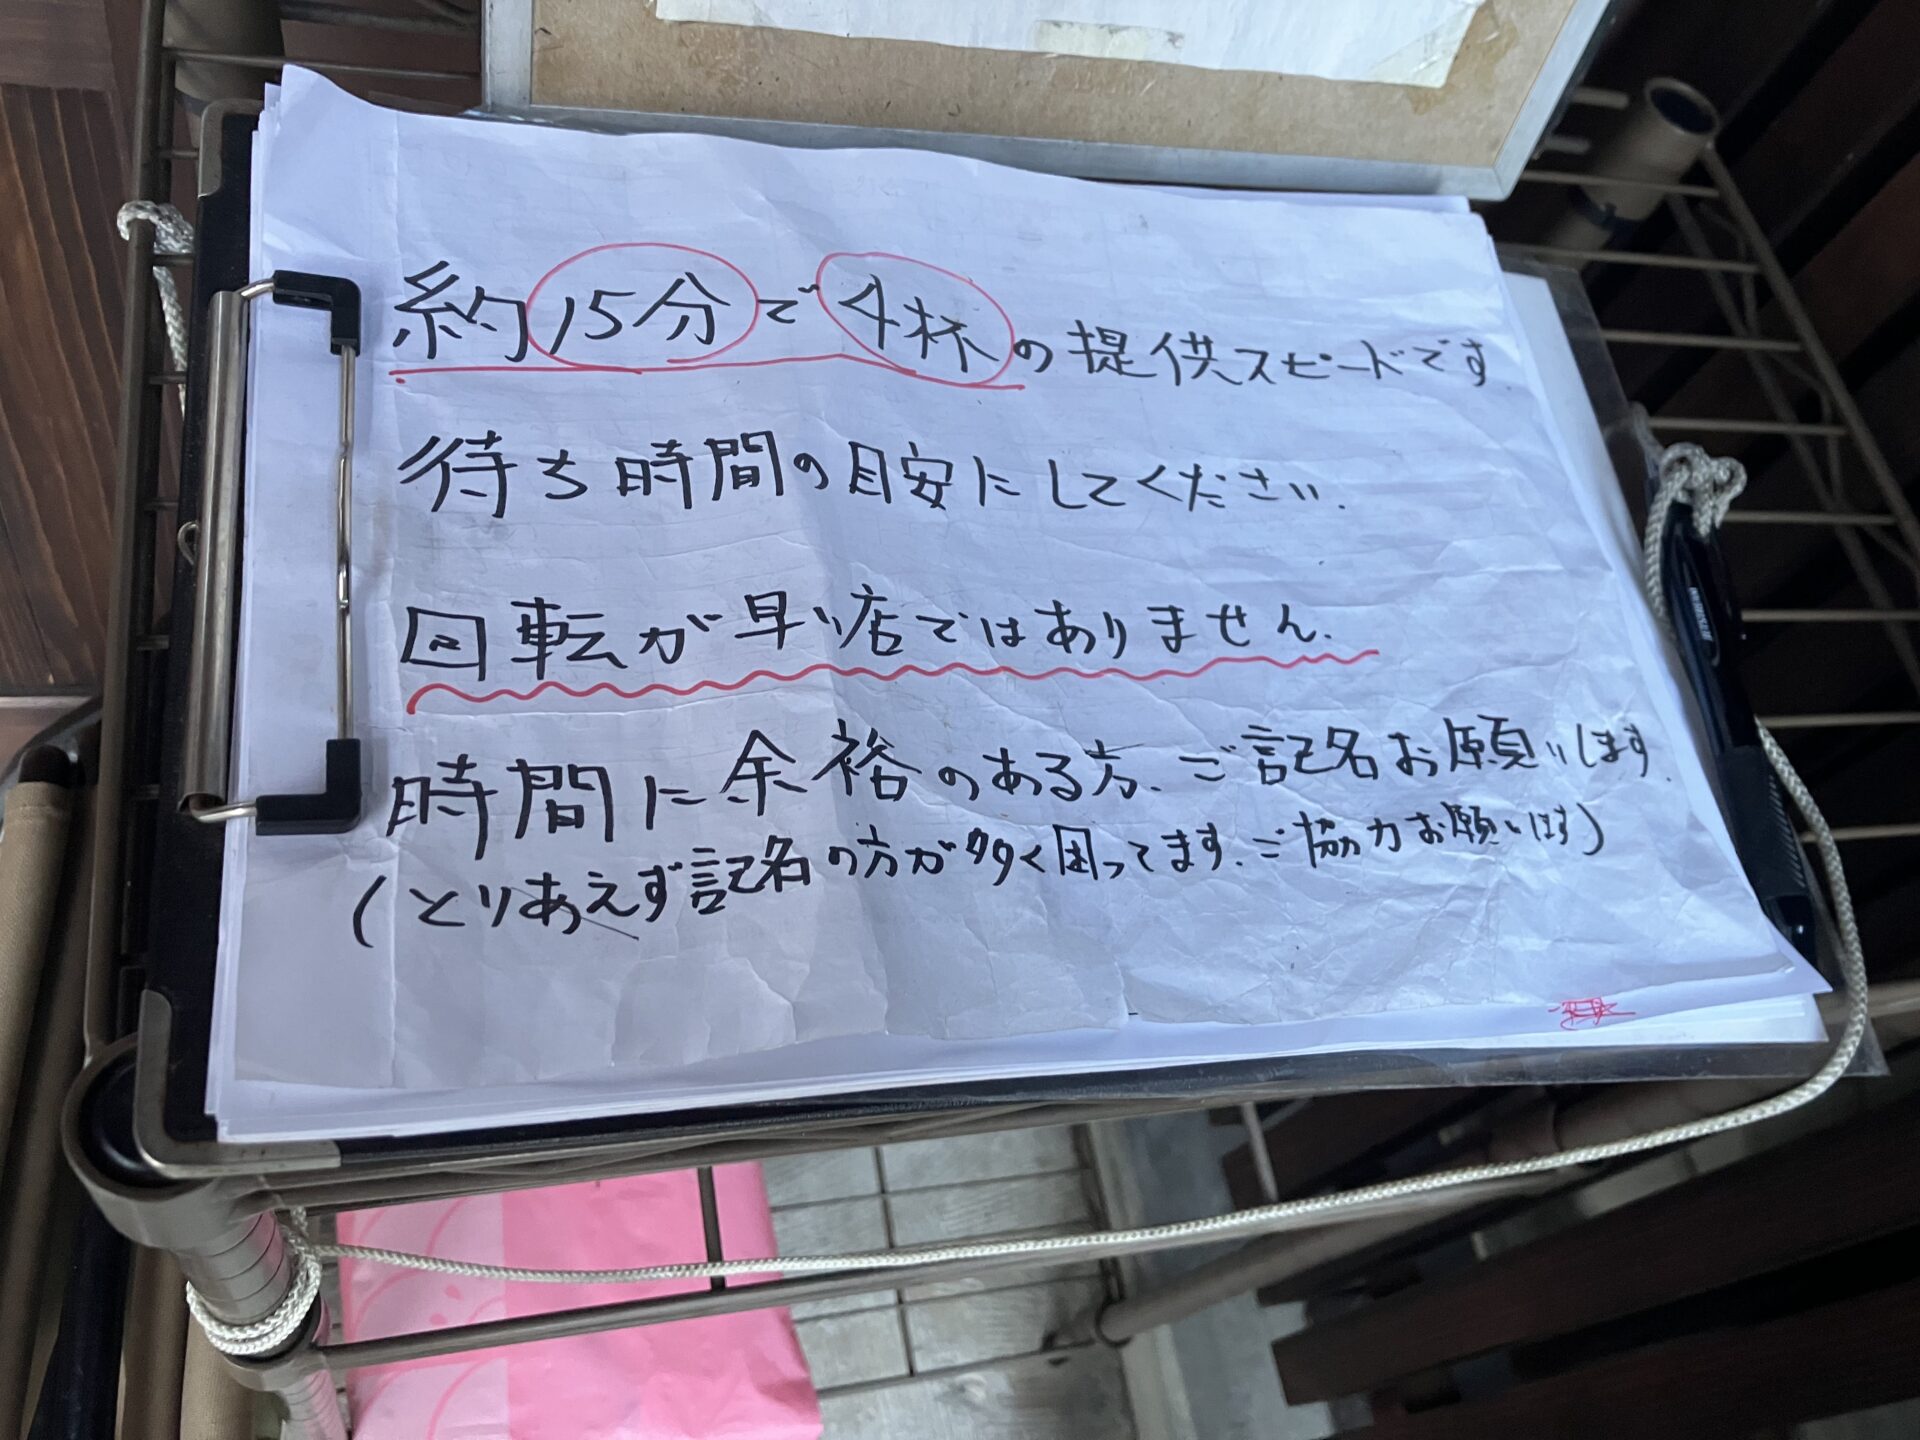 約15分で4杯の提供スピードです
待ち時間の目安にしてください.
回転が早い店ではありません.
時間に余裕のある方、ご記名お願いします.
(とりあえず記名の方が多く困ってます.ご協力お願いします)